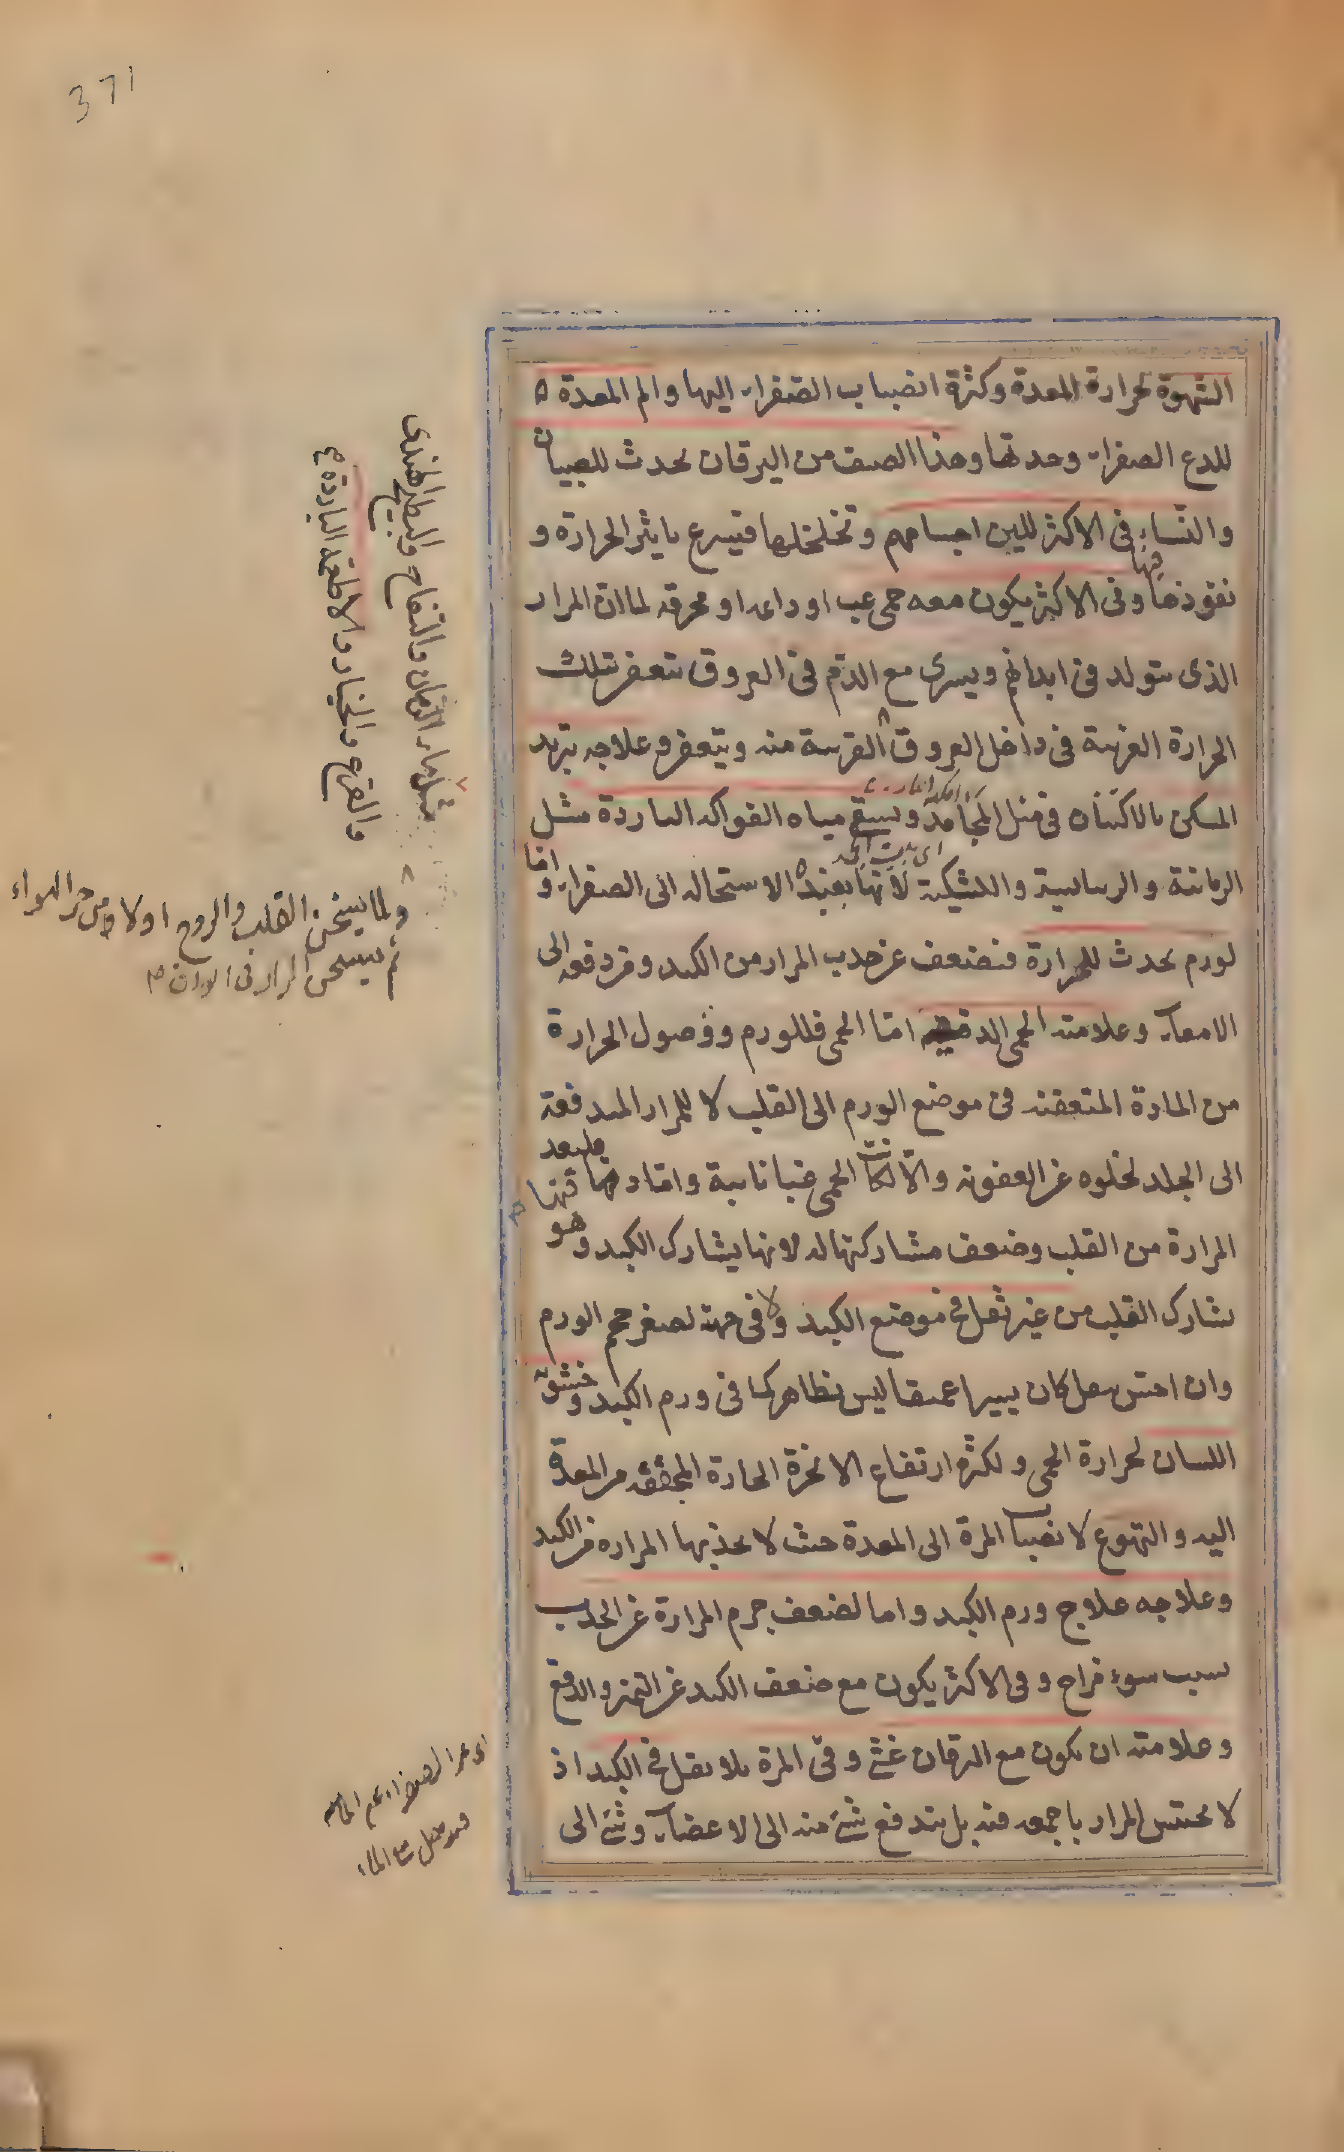 371
الشهوة لحرارة المعدة وكثرة انصباب الصفراء اليها والم المعدة
للدع الصفراء وحدتها وهذا الصنف من اليرقان يحدث للصبيان
والنساء فى الاكثر للين اجسامهم وتخلخلها فيسرع تاثير الحرارة و
نفوذها فيها وفى الاكثر يكون معه حمى غب او دايمه او محرقه لما ان المرار
الذى يتولد فى ابدانهم ويسرى مع الدم فى العروق يتعفر بتلك
الحرارة الغريبة فى داخل العروق القريبة منه ويتعفر وعلاجه تبريد
المسكن بالاكنان فى مثل المجامد ويسقى مياه الفواكه الباردة مثل
الرمانية و والكشكية لانها بعيدة الاستحاله الى الصفراء واما
لورم يحدث للمرارة فتضعف عن جذب المرار من الكبد وعن دفعه الى
الامعاء وعلامته الحمى الدقيقة اما الحمى فللورم ووصول الحرارة
من المادة المتعفنه فى موضع الورم الى القلب لا للمرار المندفعة
الى الجلد لخلوه عن العفونه والا لكانت الحمى غبا نايبة واما دقتها فلبعد
المرارة من القلب وضعف مشاركتها له لانها يشارك الكبد وهو
يشارك القلب من غير ثقل فى موضع الكبد ولا فى جهته لصغر حجم الورم
وان احتس ثقل كان يسيرا عميقا ليس بظاهر كما فى ورم الكبد وخشونة
اللسان لحرارة الحمى ولكثرة ارتفاع الابخرة الحارة المجففه من المعدة
اليه والتهوع لانصباب المرة الى المعدة حيث لا يجذبها المرارة من الكبد
وعلاجه علاج ورم الكبد واما لضعف جرم المرارة عن الجذب
بسبب سوء مزاج وفى الاكثر يكون مع ضعف الكبد عن التميز والدفع
وعلامته ان يكون مع اليرقان غثى وقى المرة بلا ثقل فى الكبد اذ
لا يحتبس المرار باجمعه فيه بل يندفع شئ منه الى الاعضاء وشئ الى
مثل ماء الرمان والتفاح والبطيخ الهندى
والقرع والخيار والاطعمة الباردة
ولما يسخن القلب والروح اولا من حر الهواء
ثم يسخن المرار فى الابدان